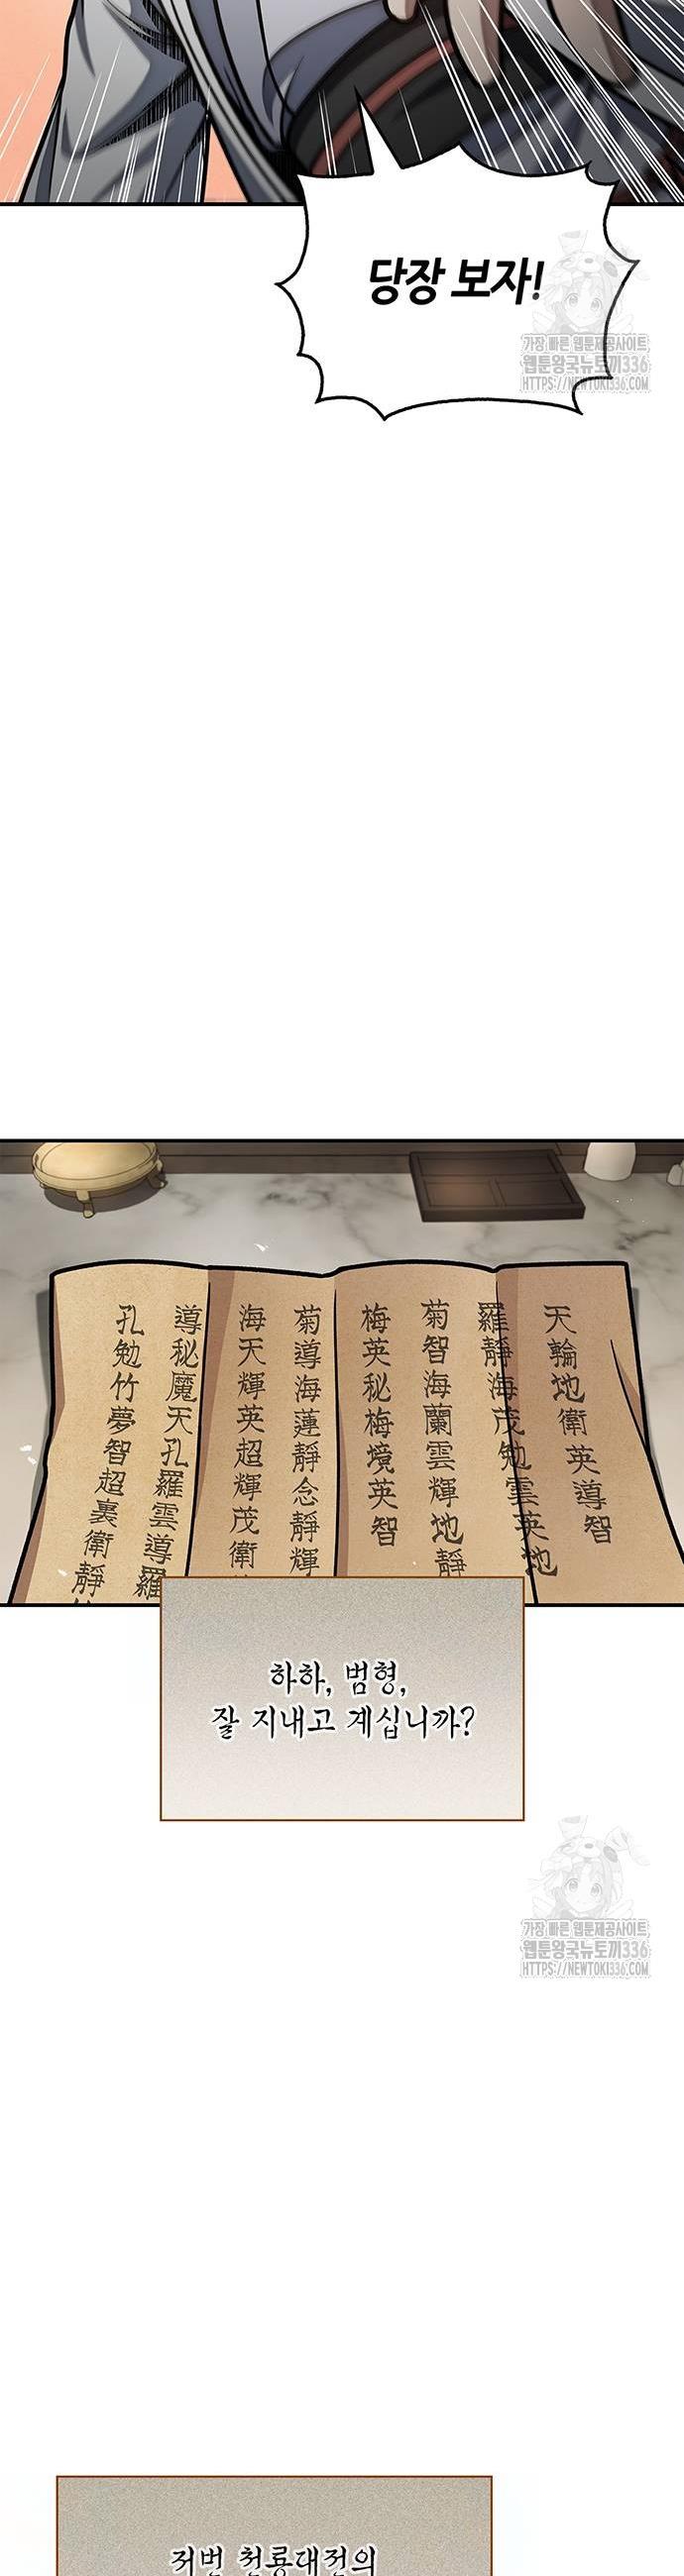 당장 보자!
가장 빠른 웹툰제공사이트
웹툰왕국뉴토끼336
HTTPS://NEWTOKI336.COM
天輪地衛英導智
羅靜海茂勉雲英地
菊智海蘭雲輝地靜
梅英秘梅境英智
菊導海蓮靜念靜輝
海天輝英超輝茂衛
導秘魔天孔羅雲導羅
孔勉竹夢智超裏衛靜
하하, 범형,
잘 지내고 계십니까?
가장 빠른 웹툰제공사이트
웹툰왕국뉴토끼336
HTTPS://NEWTOKI336.COM
저번 천룡대전의